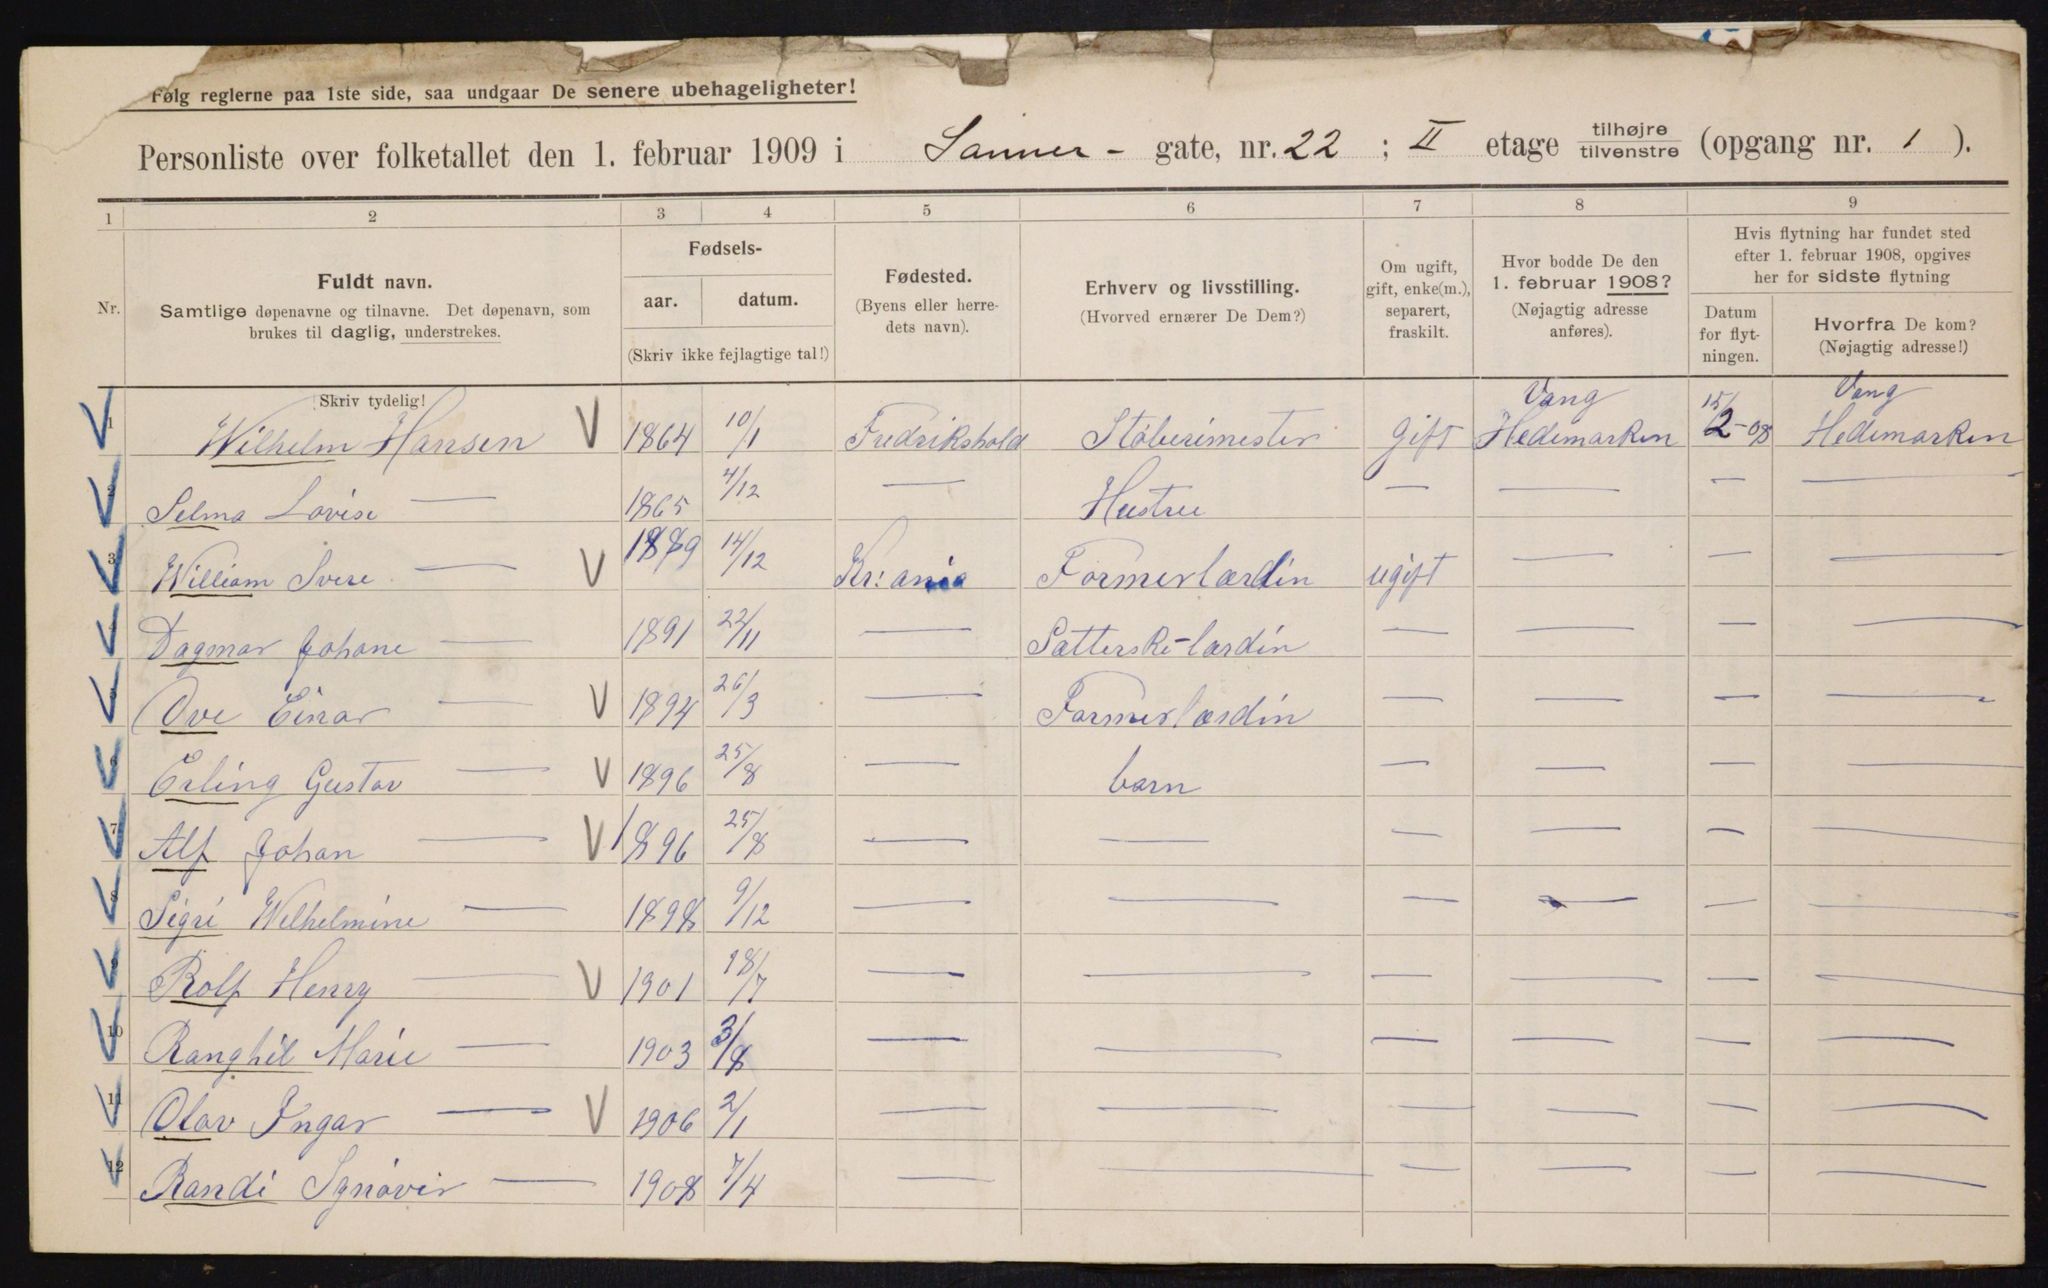 Følg reglerne paa 1ste side, saa undgaar De senere ubehageligheter!
Personliste over folketallet den 1. februar 1909 i Sanner - gate, nr. 22 ; II etage tilhøjre / tilvenstre (opgang nr. 1 ).
1 2 3 4 5 6 7 8 9
Nr.
Fuldt navn.
Samtlige døpenavne og tilnavne. Det døpenavn, som
brukes til daglig, understrekes.
Skriv tydelig!
Fødsels-
aar. datum.
(Skriv ikke fejlagtige tal!)
Fødested.
(Byens eller herre-
dets navn).
Erhverv og livsstilling.
(Hvorved ernærer De Dem?)
Om ugift,
gift, enke(m.),
separert,
fraskilt.
Hvor bodde De den
1. februar 1908?
(Nøjagtig adresse
anføres).
Hvis flytning har fundet sted
efter 1. februar 1908, opgives
her for sidste flytning
Datum
for flyt-
ningen.
Hvorfra De kom?
(Nøjagtig adresse!)
1 Wilhelm Hansen V 1864 10/1 Fredrikshold Støberimester gift Vang Hedemarken 15/2-08 Vang Hedemarken
2 Selma Lovise — 1865 4/12 — Hustru — — — —
3 William Svere — V 1889 14/12 Kr:ania Formerlærdin ugift — — —
4 Dagmar Johane — 1891 22/11 — Sætterske-lærdin — — — —
5 Ove Einar — V 1894 26/3 — Formerlærdin — — — —
6 Erling Gustav — V 1896 25/8 — barn — — — —
7 Alf Johan — V 1896 25/8 — — — — — —
8 Sigri Wilhelmine — 1898 9/12 — — — — — —
9 Rolf Henry — V 1901 18/7 — — — — — —
10 Ranghil Marie — 1903 3/8 — — — — — —
11 Olav Ingar — V 1906 2/1 — — — — — —
12 Randi Synøvir — 1908 7/4 — — — — — —